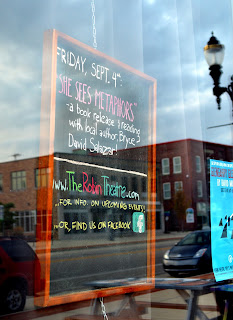 FRIDAY, SEPT. 4TH:
"SHE SEES METAPHORS"
-a book release & reading
with local author, Bryce
David Salazar!
www.TheRobinTheatre.com
...FOR INFO. ON UPCOMING EVENTS!
...OR, FIND US ON FACEBOOK
f